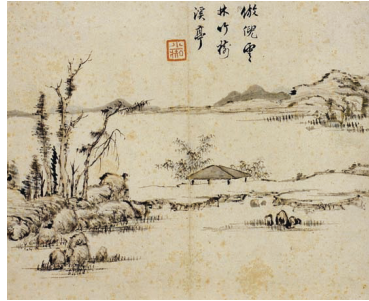 倣倪雲
林竹樹
溪亭